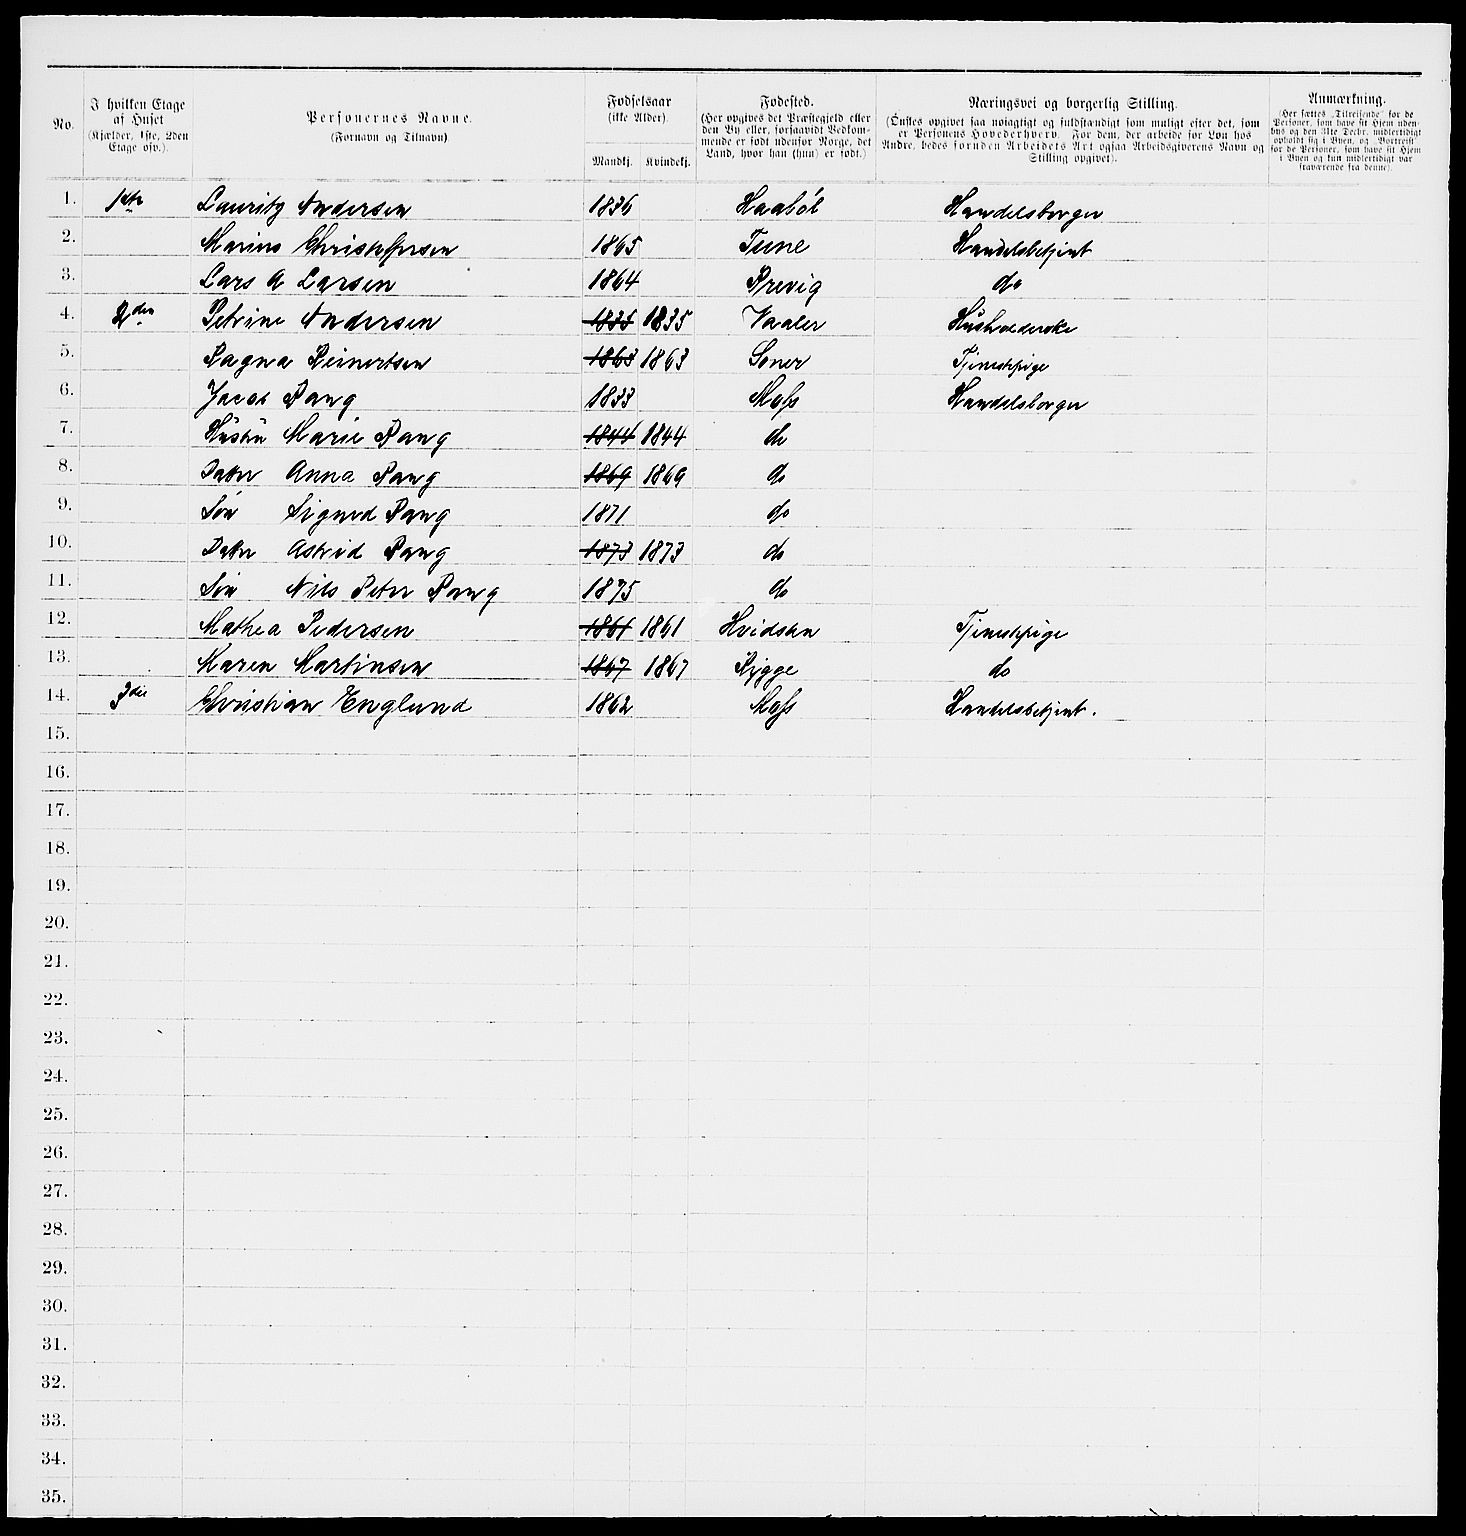 No.
I hvilken Etage af Huset
(Kjælder, 1ste, 2den Etage osv.).
Personernes Navne.
(Fornavn og Tilnavn).
Fødselsaar
(ikke Alder).
Mandkj. Kvindekj.
Fødested.
(Her opgives det Præstegjeld eller
den By eller, forsaavidt Vedkom-
mende er født udenfor Norge, det
Land, hvor han (hun) er født.)
Næringsvei og borgerlig Stilling.
(Ønskes opgivet saa nøiagtigt og fuldstændigt som muligt efter det, som
er Personens Hovederhverv. For dem, der arbeide for Løn hos
Andre, bedes foruden Arbeidets Art ogsaa Arbeidsgiverens Navn og
Stilling opgivet).
Anmærkning.
(Her sættes „Tilreisende" for de
Personer, som have sit Hjem uden-
bys og den 31te Decbr. midlertidigt
opholdt sig i Byen, og „Bortreist"
for de Personer, som have sit Hjem
i Byen og kun midlertidigt var
fraværende fra denne).
1. 1ste Lauritz Andersen 1836 Haabøl Handelsborger
2. Marius Christoffersen 1865 Tune Handelsbetjent
3. Lars A Larsen 1864 Brevig do
4. 2den Petrine Andersen 1835 1835 Vaaler Husholderske
5. Ragna Reinertsen 1863 1863 Soner Tjenestpige
6. Jacob Rang 1833 Moss Handelsborger
7. Hustru Marie Rang 1844 1844 do
8. Datter Anna Rang 1869 1869 do
9. Søn Sigurd Rang 1871 do
10. Datter Astrid Rang 1873 1873 do
11. Søn Nils Peter Rang 1875 do
12. Mathea Pedersen 1861 1861 Hvidsten Tjenestpige
13. Karen Martinsen 1867 1867 Rygge do
14. 3die Christian Englund 1862 Moss Handelsbetjent.
15.
16.
17.
18.
19.
20.
21.
22.
23.
24.
25.
26.
27.
28.
29.
30.
31.
32.
33.
34.
35.